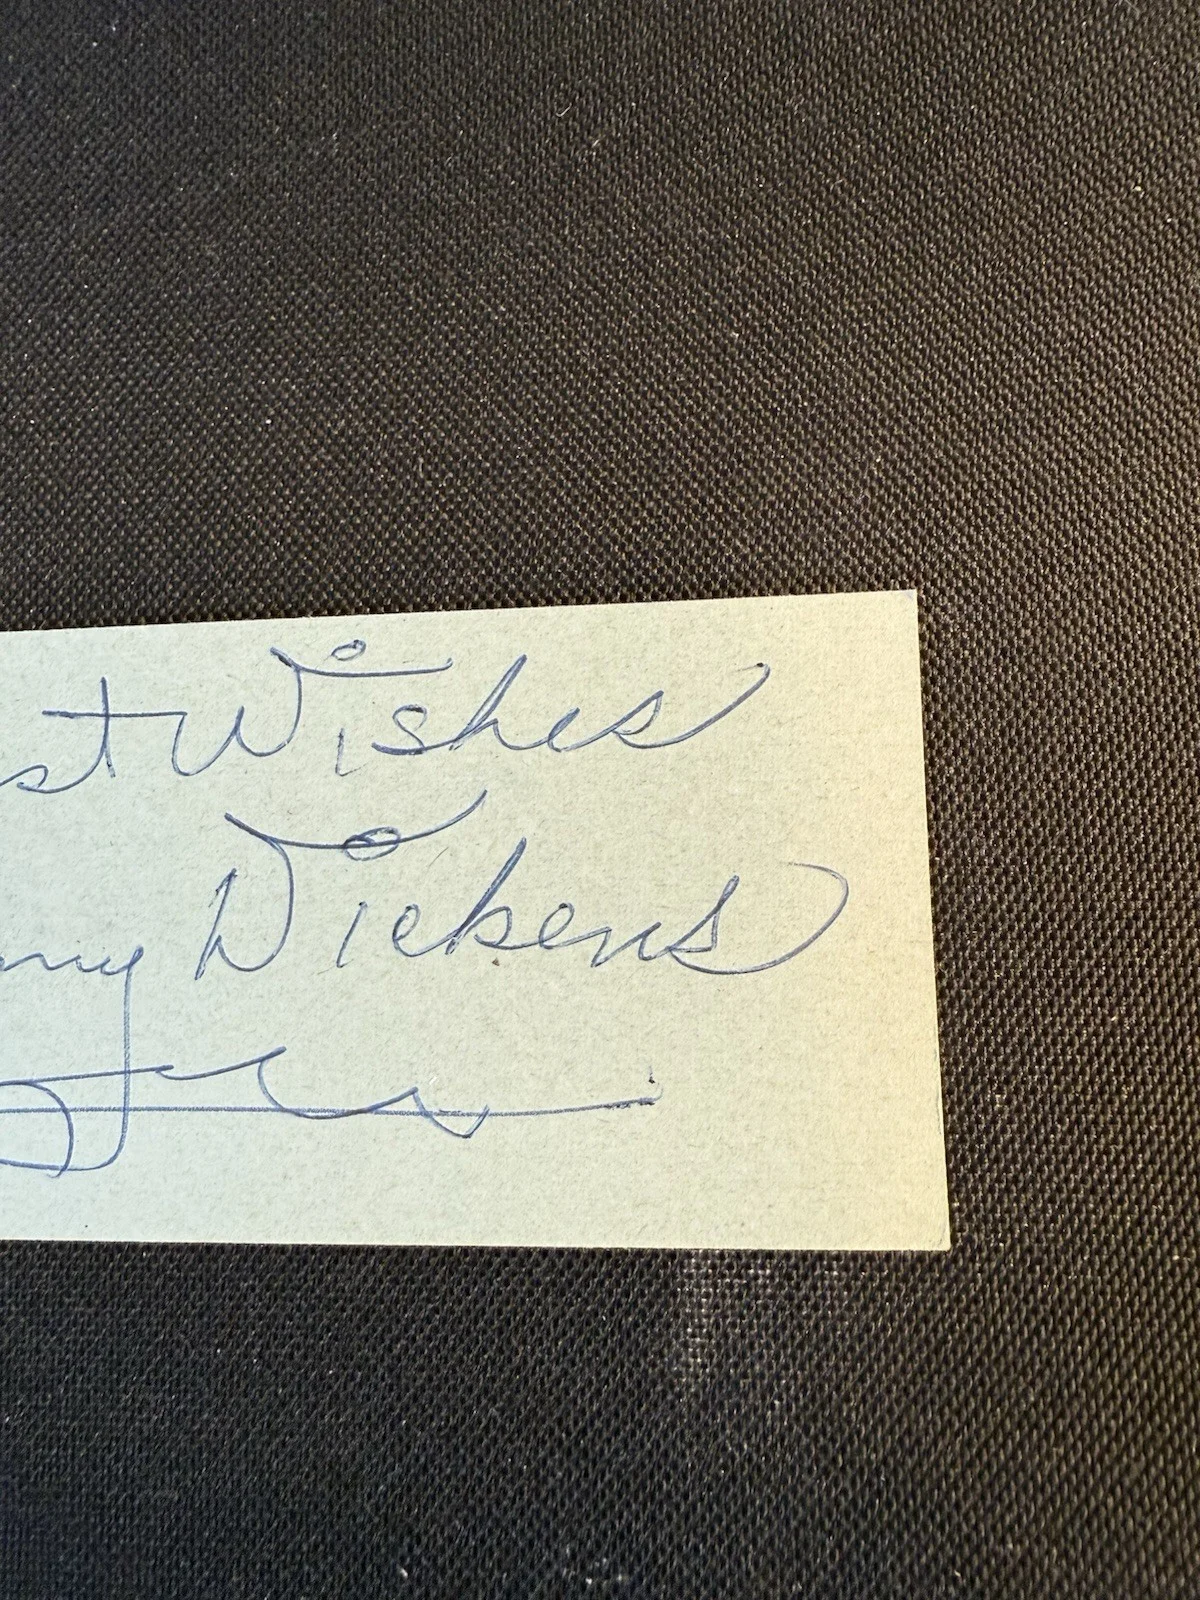 st Wishes
my Dickens